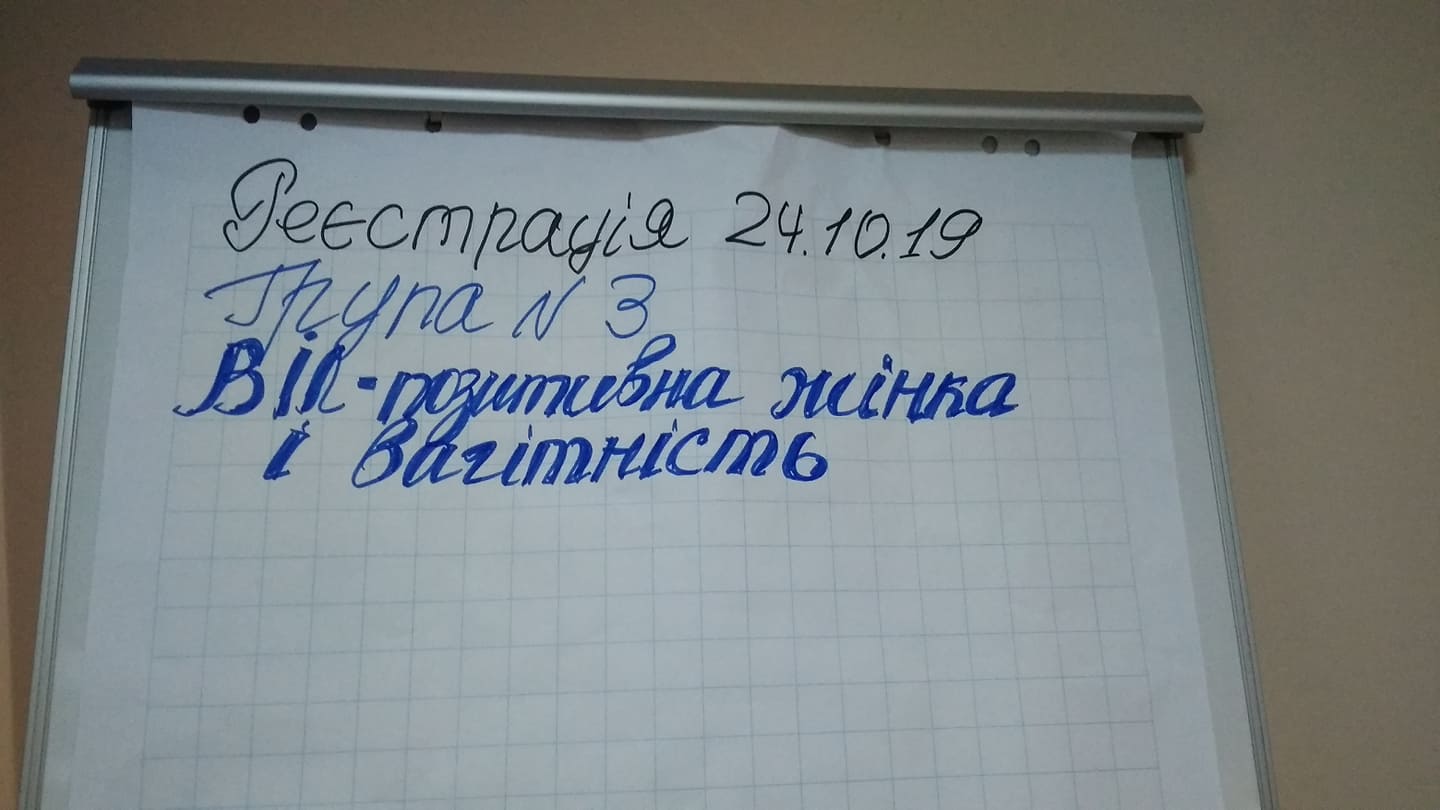 Реєстрація 24.10.19
Група N 3
ВІЛ-позитивна жінка
і вагітність